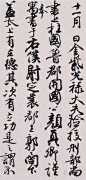 十一月日金紫光祿大夫檢校刑部尚
書上柱國魯郡開國公顏真卿謹
奉書于右僕射定襄郡王郭公閣下
蓋太上有立德其次有立功是之謂不